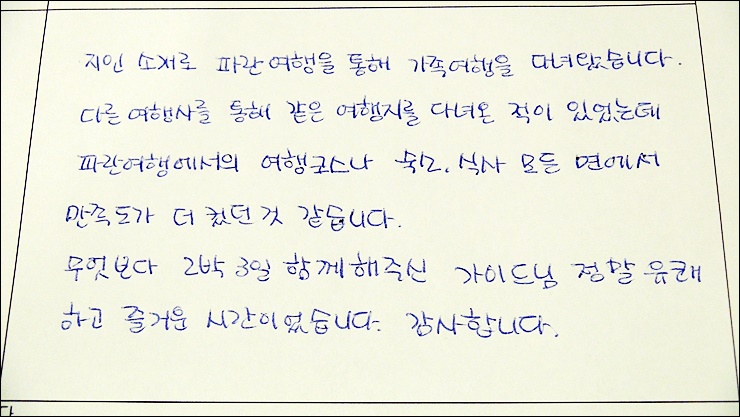 지인 소개로 파란여행을 통해 가족여행을 다녀왔습니다.
다른 여행사를 통해 같은 여행지를 다녀온 적이 있었는데
파란여행에서의 여행코스나 숙소, 식사 모든 면에서
만족도가 더 컸던 것 같습니다.
무엇보다 2박 3일 함께해주신 가이드님 정말 유쾌
하고 즐거운 시간이었습니다. 감사합니다.